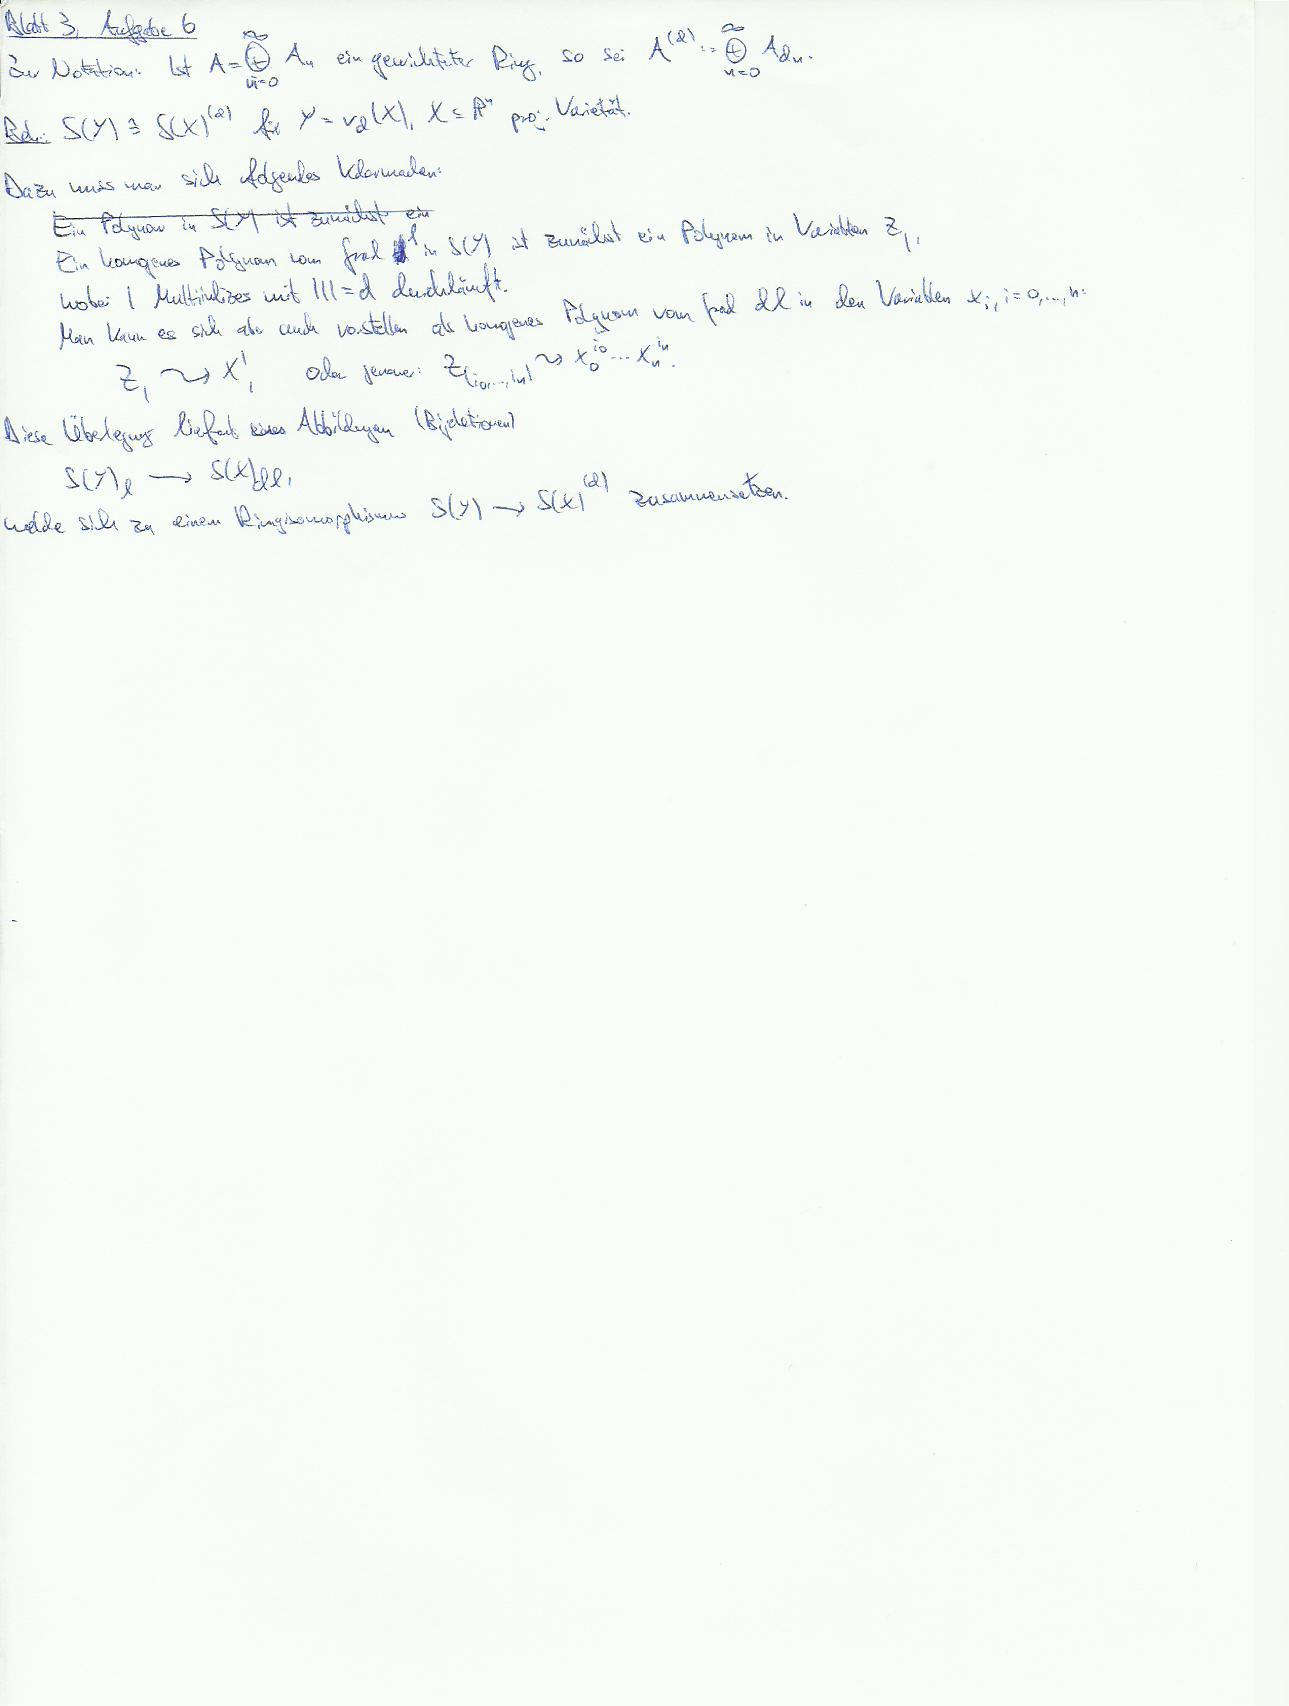 Blatt 3, Aufgabe 6
Zur Notation: Ist A = ⊕_{n=0}^∞ A_n ein gewichteter Ring, so sei A^(d) := ⊕_{n=0}^∞ A_{dn}.
Beh.: S(Y) ≅ S(X)^(d) für Y = v_d(X), X ⊆ ℙ^n proj. Varietät.
Dazu muss man sich folgendes klarmachen:
Ein Polynom in S(Y) ist zunächst ein
Ein homogenes Polynom vom Grad l in S(Y) ist zunächst ein Polynom in Variablen Z_I,
wobei I Multiindizes mit |I| = d durchläuft.
Man kann es sich aber auch vorstellen als homogenes Polynom vom Grad dl in den Variablen x_i, i=0,...,n:
Z_I ⇝ X^I, oder genauer: Z_{(i_0,...,i_n)} ⇝ x_0^{i_0} ... x_n^{i_n}.
Diese Überlegung liefert Abbildungen (Bijektionen)
S(Y)_l → S(X)_{dl},
welche sich zu einem Ringisomorphismus S(Y) → S(X)^(d) zusammensetzen.